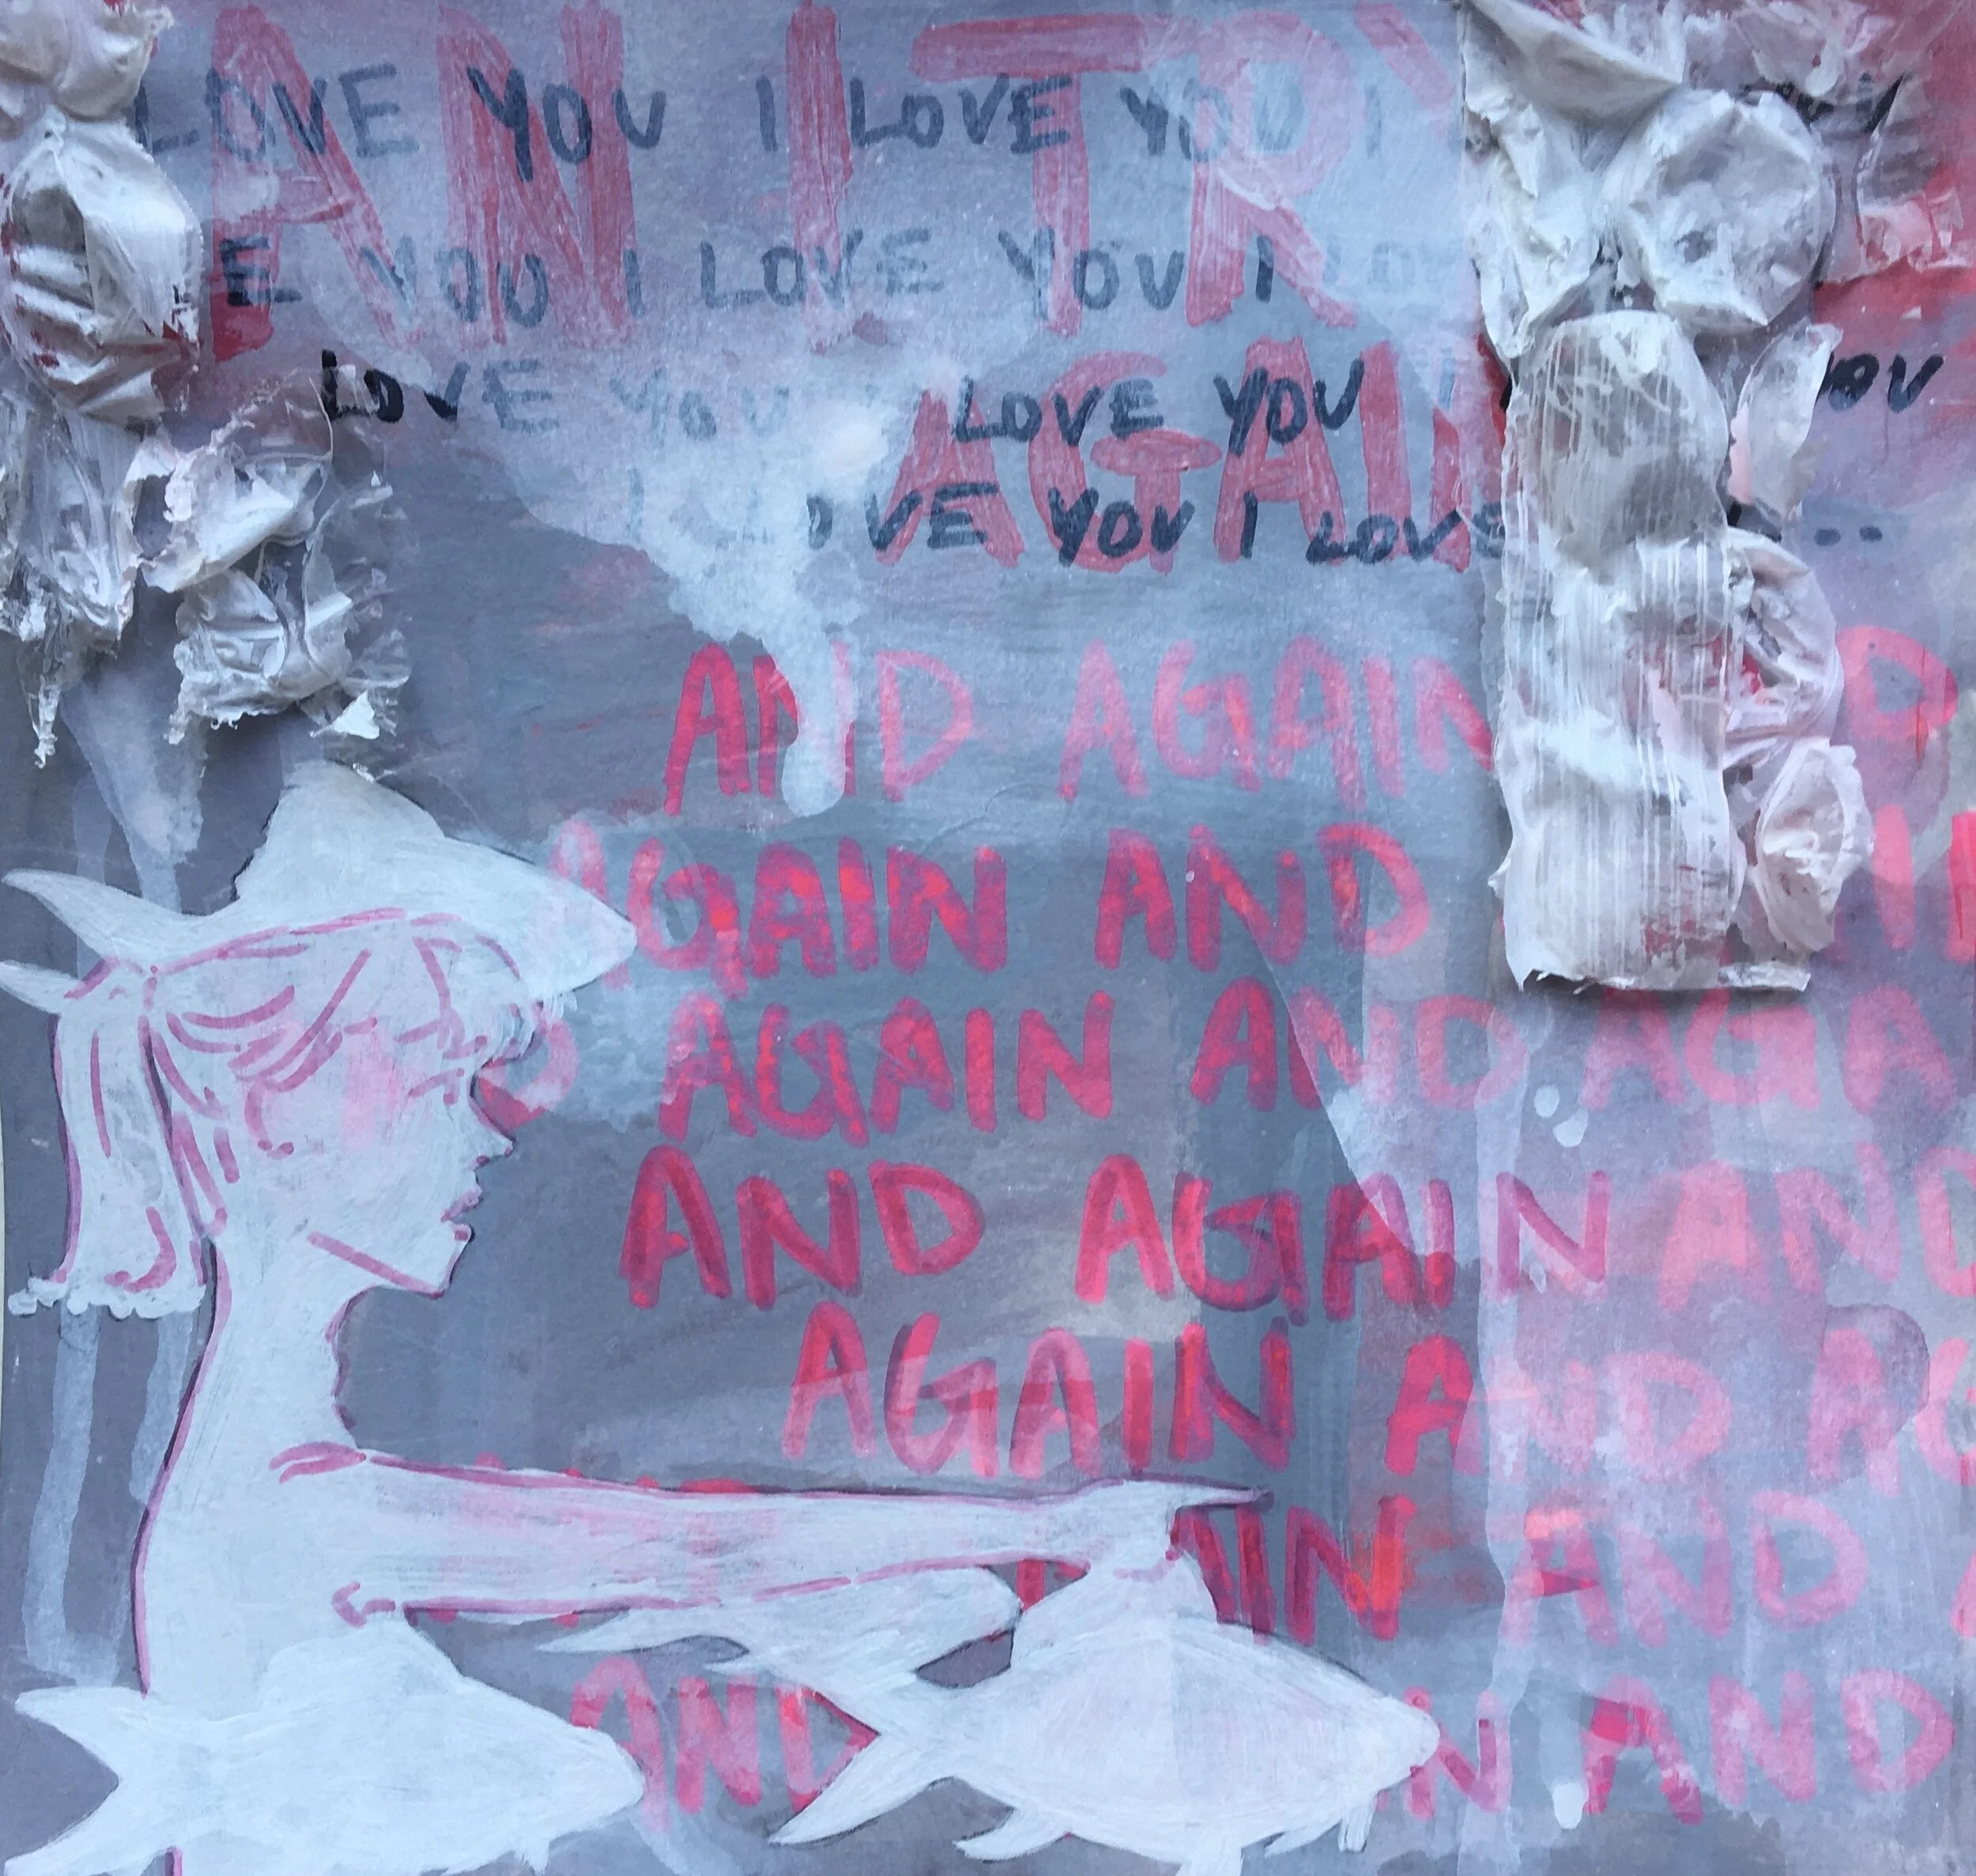 AN I TRY
LOVE YOU I LOVE YOU I
E YOU I LOVE YOU I LOV
LOVE YOU I LOVE YOU I YOU
AGAIN
I LOVE YOU I LOVE ...
AND AGAIN
AGAIN AND
AGAIN AND AGA
AND AGAIN AND
AGAIN AND AG
AIN AND
AND IN AND